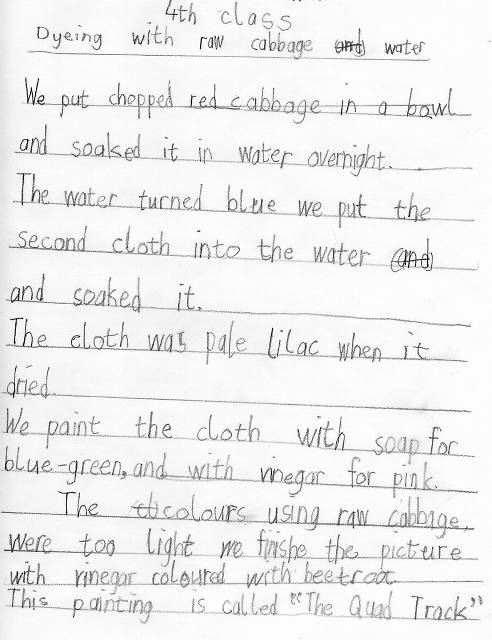 4th class
Dyeing with raw cabbage and water
We put chopped red cabbage in a bowl
and soaked it in water overnight.
The water turned blue we put the
second cloth into the water and
and soaked it.
The cloth was pale lilac when it
dried.
We paint the cloth with soap for
blue-green, and with vinegar for pink.
The colours using raw cabbage,
were too light we finishe the picture
with vinegar coloured with beetroot
This painting is called "The Quad Track"